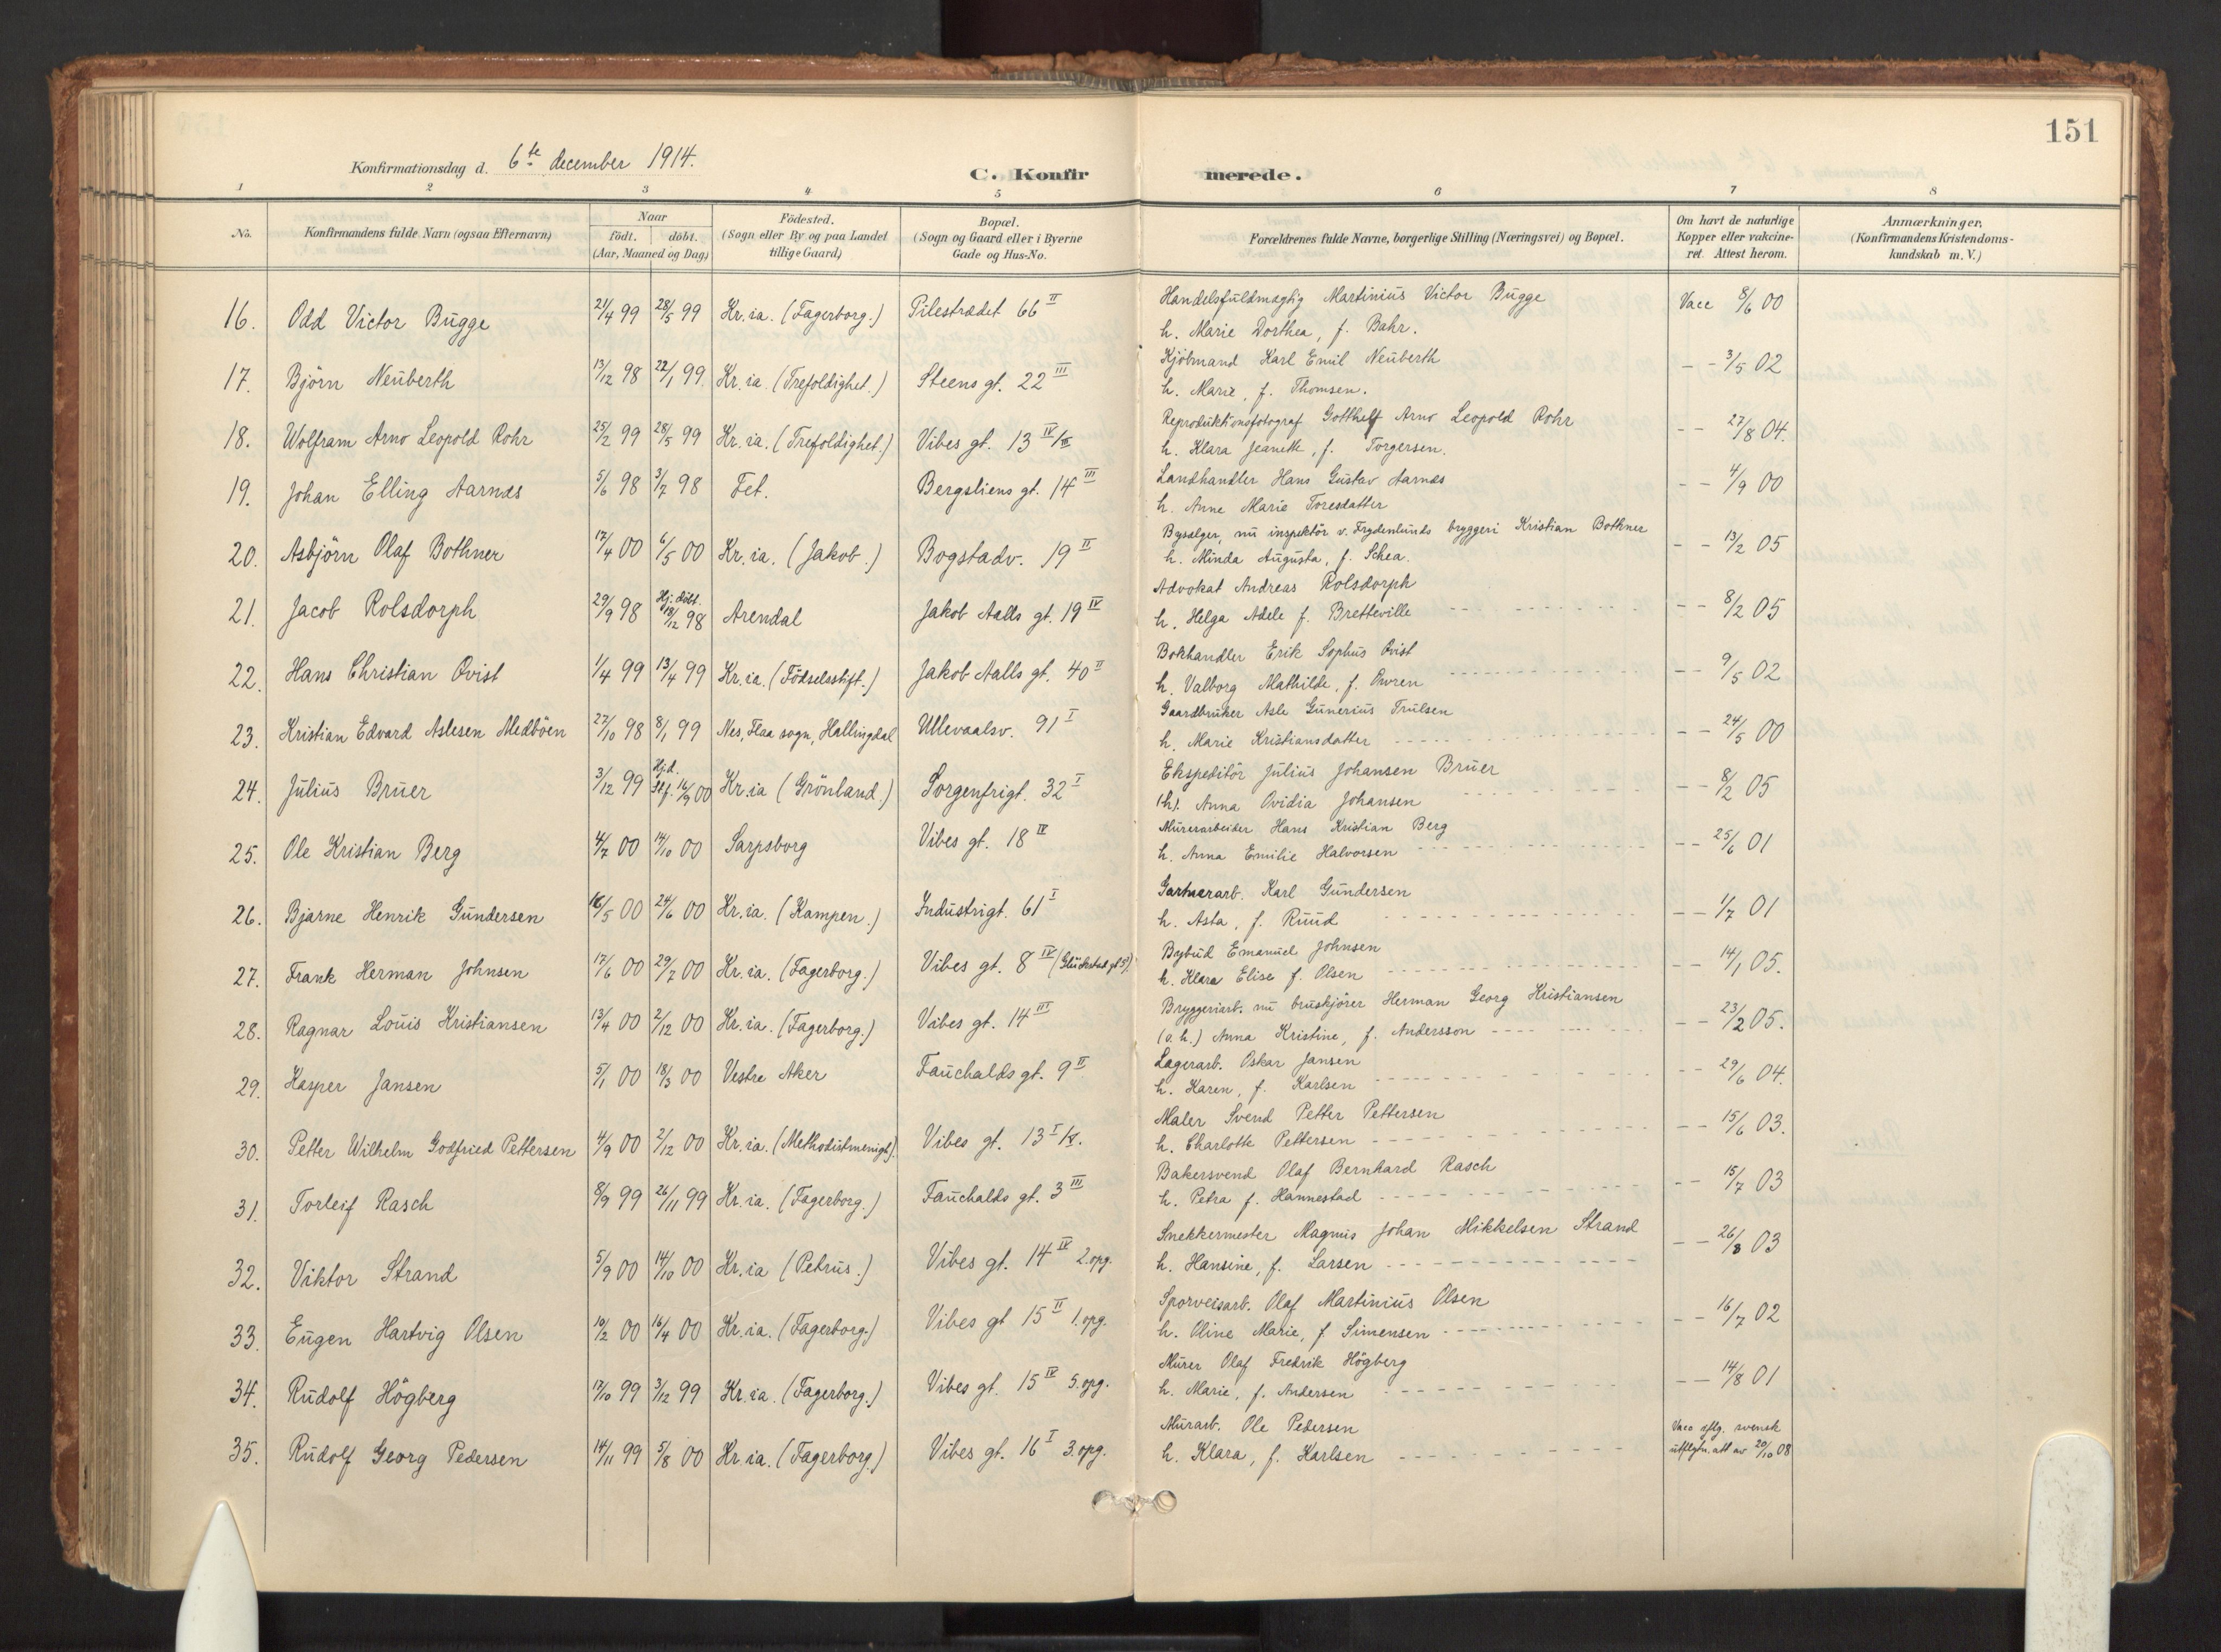 151
Konfirmationsdag d. 6te december 1914.
C. Konfirmerede.
1 2 3 4 5 6 7 8
No. Konfirmandens fulde Navn (ogsaa Efternavn) Naar födt. döbt. (Aar, Maaned og Dag) Födested. (Sogn eller By og paa Landet tillige Gaard) Bopæl. (Sogn og Gaard eller i Byerne Gade og Hus-No. Forældrenes fulde Navne, borgerlige Stilling (Næringsvei) og Bopæl. Om havt de naturlige Kopper eller vakcineret. Attest herom. Anmærkninger, (Konfirmandens Kristendomskundskab m. V.)
16. Odd Victor Bugge 21/4 99 28/5 99 Kr.ia. (Fagerborg.) Pilestrædet 66 II Handelsfuldmægtig Martinius Victor Bugge Vacc 8/6 00
h. Marie Dorthea, f. Bahr.
17. Björn Neuberth 13/12 98 22/1 99. Kr.ia. (Trefoldighet.) Steens gt. 22 III Kjöbmand Karl Emil Neuberth - - 3/5 02
h. Marie, f. Thomsen.
18. Wolfram Arno Leopold Rohr 25/2 99 28/5 99 Kr.ia. (Trefoldighet.) Vibes gt. 13 IV Reproduktionsfotograf Gotthelf Arno Leopold Rohr - - 27/8 04.
h. Klara Jeanette, f. Torgersen.
19. Johan Elling Aarnæs 5/6 98 3/7 98 Fet. Bergsliens gt. 14 III Landhandler Hans Gustav Aarnæs - - 4/9 00
h. Anne Marie Toresdatter
20. Asbjörn Olaf Bothner 17/4 00 6/5 00 Kr.ia. (Jakob.) Bogstadv. 19 II Bysælger, nu inspektör v. Frydenlunds bryggeri Kristian Bothner - - 13/2 05
h. Minda Augusta, f. Schea.
21. Jacob Rolsdorph 29/9 98 Hj. döbt. 18/12 98 Arendal Jakob Aalls gt. 19 IV Advokat Andreas Rolsdorph - - 8/2 05
h. Helga Adele f. Bretteville
22. Hans Christian Qvist 1/4 99 13/4 99 Kr.ia. (Födselsstift.) Jakob Aalls gt. 40 II Bokhandler Erik Sophus Qvist - - 9/5 02
h. Valborg Mathilde, f. Owren
23. Kristian Edvard Aslesen Medböen 27/10 98 8/1 99 Nes, Flaa sogn, Hallingdal Ullevaalsv. 91 I Gaardbruker Asle Gunerius Trulsen - - 24/5 00
h. Marie Kristiansdatter
24. Julius Bruer 3/12 99 Hj.d. Stf. 16/9 00 Kr.ia (Grönland.) Sorgenfrigt. 32 I Ekspeditör Julius Johansen Bruer - - 8/2 05
(h). Anna Ovidia Johansen
25. Ole Kristian Berg 4/7 00 14/10 00 Sarpsborg Vibes gt. 18 IV Murerarbeider Hans Kristian Berg - - 25/6 01
h. Anna Emilie Halvorsen
26. Bjarne Henrik Gundersen 16/5 00 24/6 00 Kr.ia. (Kampen.) Industrigt. 61 I Gartnerarb. Karl Gundersen - - 1/7 01
h. Asta, f. Ruud
27. Frank Herman Johnsen 17/6 00 29/7 00 Kr.ia. (Fagerborg.) Vibes gt. 8 IV (Glückstad gt 5). Bybud Emanuel Johnsen - - 14/1 05.
h. Klara Elise f. Olsen
28. Ragnar Louis Kristiansen 13/4 00 2/12 00 Kr.ia. (Fagerborg.) Vibes gt. 14 III Bryggeriarb. nu bruskjörer Herman Georg Kristiansen - - 23/2 05.
(o.h.) Anna Kristine, f. Andersson
29. Kasper Jansen 5/1 00 18/3 00 Vestre Aker Fauchalds gt. 9 II Lagerarb. Oskar Jansen - - 29/6 04.
h. Karen, f. Karlsen
30. Petter Wilhelm Godfried Pettersen 4/9 00 2/12 00 Kr.ia. (Methodistmenigh.). Vibes gt. 13 I Maler Svend Petter Pettersen - - 15/6 03.
h. Charlotte Pettersen
31. Torleif Rasch 8/9 99 26/11 99 Kr.ia. (Fagerborg.) Fauchalds gt. 3 III Bakersvend Olaf Bernhard Rasch - - 15/7 03
h. Petra f. Hannestad
32. Viktor Strand 5/9 00 14/10 00 Kr.ia (Petrus.) Vibes gt. 14 IV 2.opg. Snekkermester Magnus Johan Mikkelsen Strand - - 26/8 03
h. Hansine, f. Larsen
33. Eugen Hartvig Olsen 10/2 00 16/4 00 Kr.ia. (Fagerborg.) Vibes gt 15 II 1.opg. Sporveisarb. Olaf Martinius Olsen - - 16/7 02
h. Oline Marie, f. Simensen
34. Rudolf Högberg 17/10 99 3/12 99 Kr.ia. (Fagerborg.) Vibes gt. 15 IV 5.opg. Murer Olaf Fredrik Högberg - - 14/8 01
h. Marie, f. Andersen
35. Rudolf Georg Pedersen 14/11 99 5/8 00 Kr.ia. (Fagerborg.) Vibes gt. 16 I 3.opg. Murarb. Ole Pedersen Vacc iflg. svensk
h. Klara, f. Karlsen utflytn. att av 20/10 08